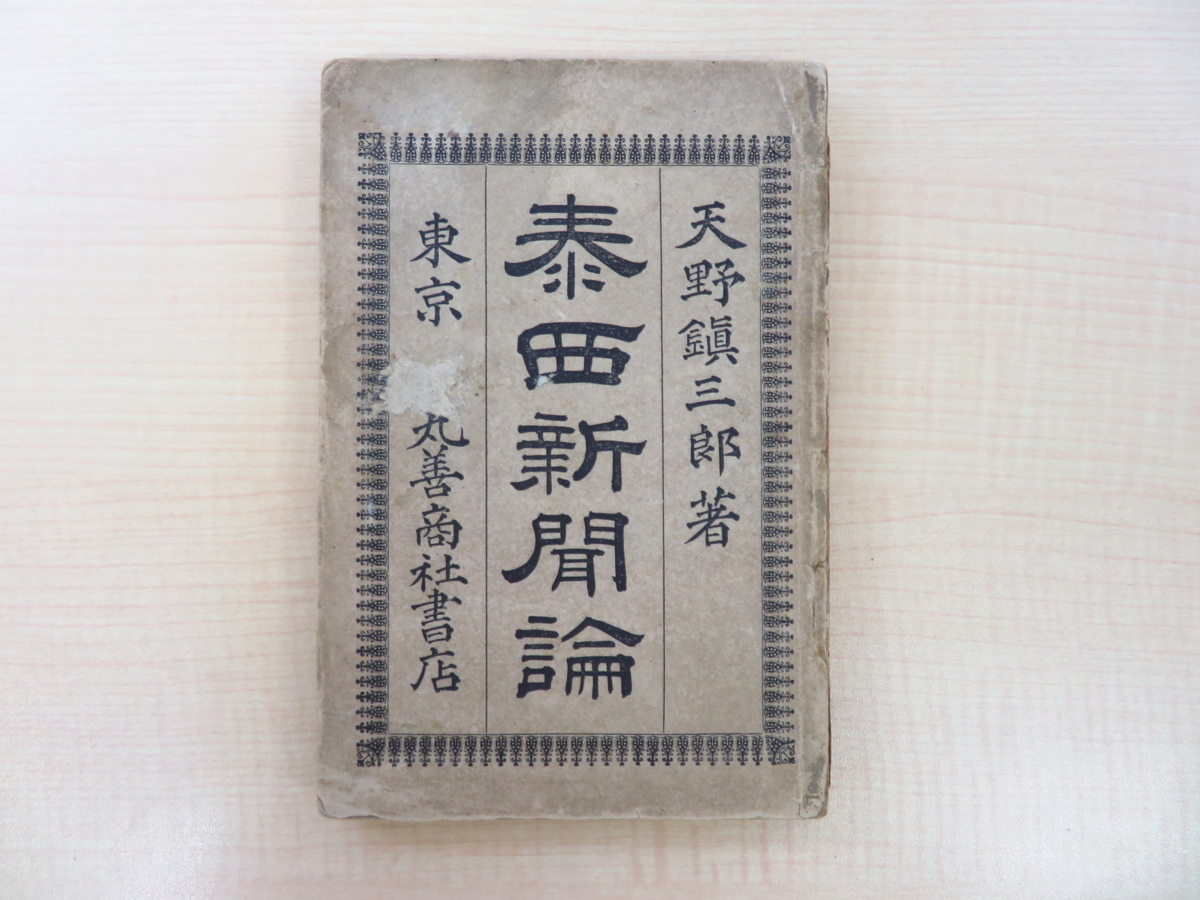 天野鎭三郎著
泰西新聞論
東京　丸善商社書店